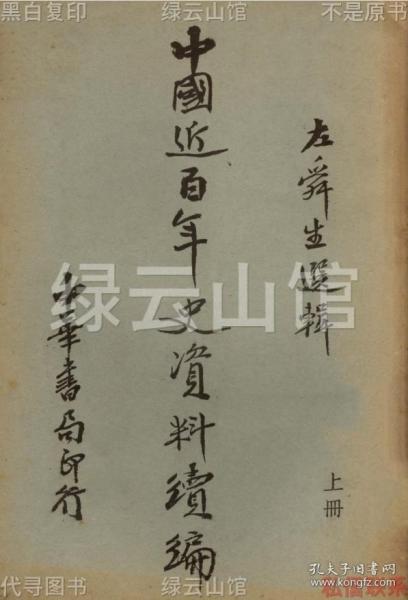 黑白复印
绿云山馆
不是原书
左舜生選輯
中國近百年史資料續編
绿云山馆
中華書局印行
上冊
孔夫子旧书网
www.kongfz.com
代寻图书
绿云山馆
私信联系